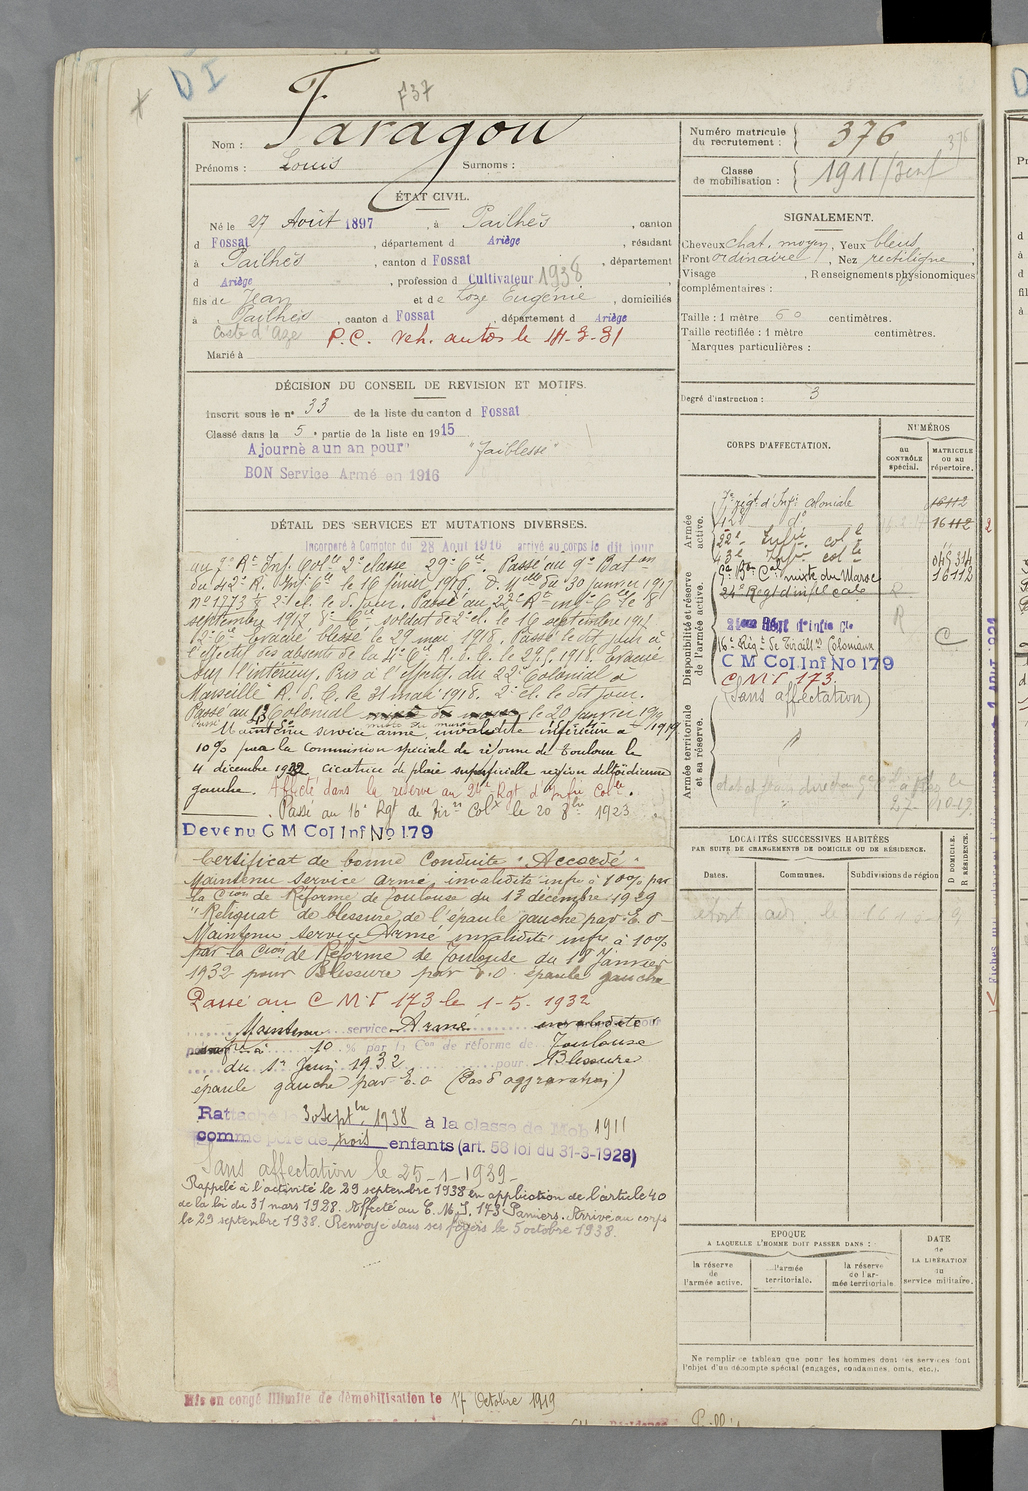 D I
F37
Nom : Faragou
Prénoms : Louis Surnoms :
ÉTAT CIVIL.
Né le 27 Août 1897, à Pailhès, canton
d Fossat, département d Ariège, résidant
à Pailhès, canton d Fossat, département
d Ariège, profession d Cultivateur 1938
fils de Jean et de Loze Eugénie, domiciliés
à Pailhès, canton d Fossat, département d Ariège
P.C. veh. autos le 14-3-31
Marié à
DÉCISION DU CONSEIL DE REVISION ET MOTIFS.
Inscrit sous le n° 33 de la liste du canton d Fossat
Classé dans la 5e partie de la liste en 1915
Ajourné a un an pour "Faiblesse"
BON Service Armé en 1916
DÉTAIL DES SERVICES ET MUTATIONS DIVERSES.
Incorporé à Compter du 28 Août 1916 arrivé au corps le dit jour
au 7e Rt Inf. Colle 2e classe 29e Cie. Passé au 9e Baton
du 42e R. Inf. Cle le 16 février 1917. D. Mlle du 30 janvier 1917
2e cl. le d. jour. Passé au 22e Rt inf. Cle le 8
septembre 1917 8e Cie soldat de 2e cl. le 16 septembre 1917
12e Cie Evacué blessé le 29 mai 1918. Passé le dit jour à
l'effectif des absents de la 4e Cie R. d. C. le 29.5.1918. Evacué
sur l'intérieur. Pris à l'effectif du 22e Colonial à
Marseille R. d. C. le 31 mai 1918. 2e cl. le dit jour.
Passé au 43 Colonial le 20 janvier 1919
Maintenu service armé, invalidité inférieure à
10% par la Commission spéciale de réforme de Toulouse le
4 décembre 1922 cicatrice de plaie superficielle région deltoïdienne
gauche. Affecté dans la réserve au 24e Rgt d'Infie Colle.
Passé au 16e Rgt de Tirrs Colx le 20 8bre 1923
Devenu C M Col Inf No 179
Certificat de bonne Conduite "Accordé"
Maintenu service armé, invalidité infre à 10% par
la Cion de Réforme de Toulouse du 13 décembre 1929
"Reliquat de blessure de l'épaule gauche par E.O-
Maintenu service Armé invalidité infre à 10%
par la Cion de Réforme de Toulouse du 18 Janvier
1932 pour Blessure par E.O. épaule gauche
Passé au C M I 173 le 1-5-1932
Maintenu service Armé invalidité
infre à 10 % par la Con de réforme de Toulouse
du 1er Juin 1932 pour Blessure
épaule gauche par E.O (Pas d'aggravation)
Rattaché le 30 Septbre 1938 à la classe de Mob 1911
comme père de trois enfants (art. 58 loi du 31-3-1928)
Sans affectation le 25-1-1939-
Rappelé à l'activité le 29 septembre 1938 en application de l'article 40
de la loi du 31 mars 1928. Affecté au C. M. I. 173 Pamiers. Arrivé au corps
le 29 septembre 1938. Renvoyé dans ses foyers le 5 octobre 1938.
Mis en congé illimité de démobilisation le 17 Octobre 1919
Numéro matricule du recrutement : 376
376
Classe de mobilisation : 1911/3enf
SIGNALEMENT.
Cheveux chat. moyen, Yeux bleus,
Front ordinaire, Nez rectiligne,
Visage , Renseignements physionomiques
complémentaires :
Taille : 1 mètre 60 centimètres.
Taille rectifiée : 1 mètre centimètres.
Marques particulières :
Degré d'instruction : 3
CORPS D'AFFECTATION.
NUMÉROS
au CONTRÔLE spécial.
MATRICULE ou au répertoire.
Armée active.
7e régt d'Infie Coloniale 16112
42e do 16112
22e Infie cole
43e Infie cole
5e Bn Cal mixte du Maroc 16112
Disponibilité et réserve de l'armée active.
24e Regt d'inf cale R
R
16e Régt de Tirailrs Coloniaux C
C M Col Inf No 179
C M I 173
(Sans affectation)
Armée territoriale et sa réserve.
LOCALITÉS SUCCESSIVES HABITÉES
PAR SUITE DE CHANGEMENTS DE DOMICILE OU DE RÉSIDENCE.
Dates. Communes. Subdivisions de région
D DOMICILE.
R RÉSIDENCE.
EPOQUE
A LAQUELLE L'HOMME DOIT PASSER DANS :
la réserve de l'armée active.
l'armée territoriale.
la réserve de l'armée territoriale.
DATE de LA LIBÉRATION du service militaire.
Ne remplir ce tableau que pour les hommes dont les services font
l'objet d'un décompte spécial (engagés, condamnés, omis, etc.).